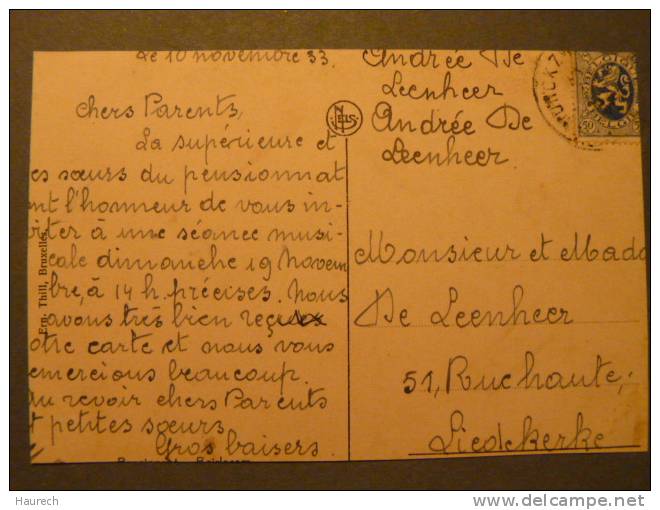 Le 10 novembre 33.
Chers Parents,
La supérieure et
es sœurs du pensionnat
nt l'honneur de vous in-
viter à une séance musi-
cale dimanche 19 novem
bre, à 14 h. précises. Nous
avons très bien reçu
otre carte et nous vous
emercions beaucoup.
Au revoir chers Parents
t petites sœurs
Gros baisers.
Ern. Thill, Bruxelles
NELS
Andrée De
Leenheer
Andrée De
Leenheer
BELGIQUE
Monsieur et Mada
De Leenheer
51, Rue haute,
Liedekerke
Haurech
www.delcampe.net